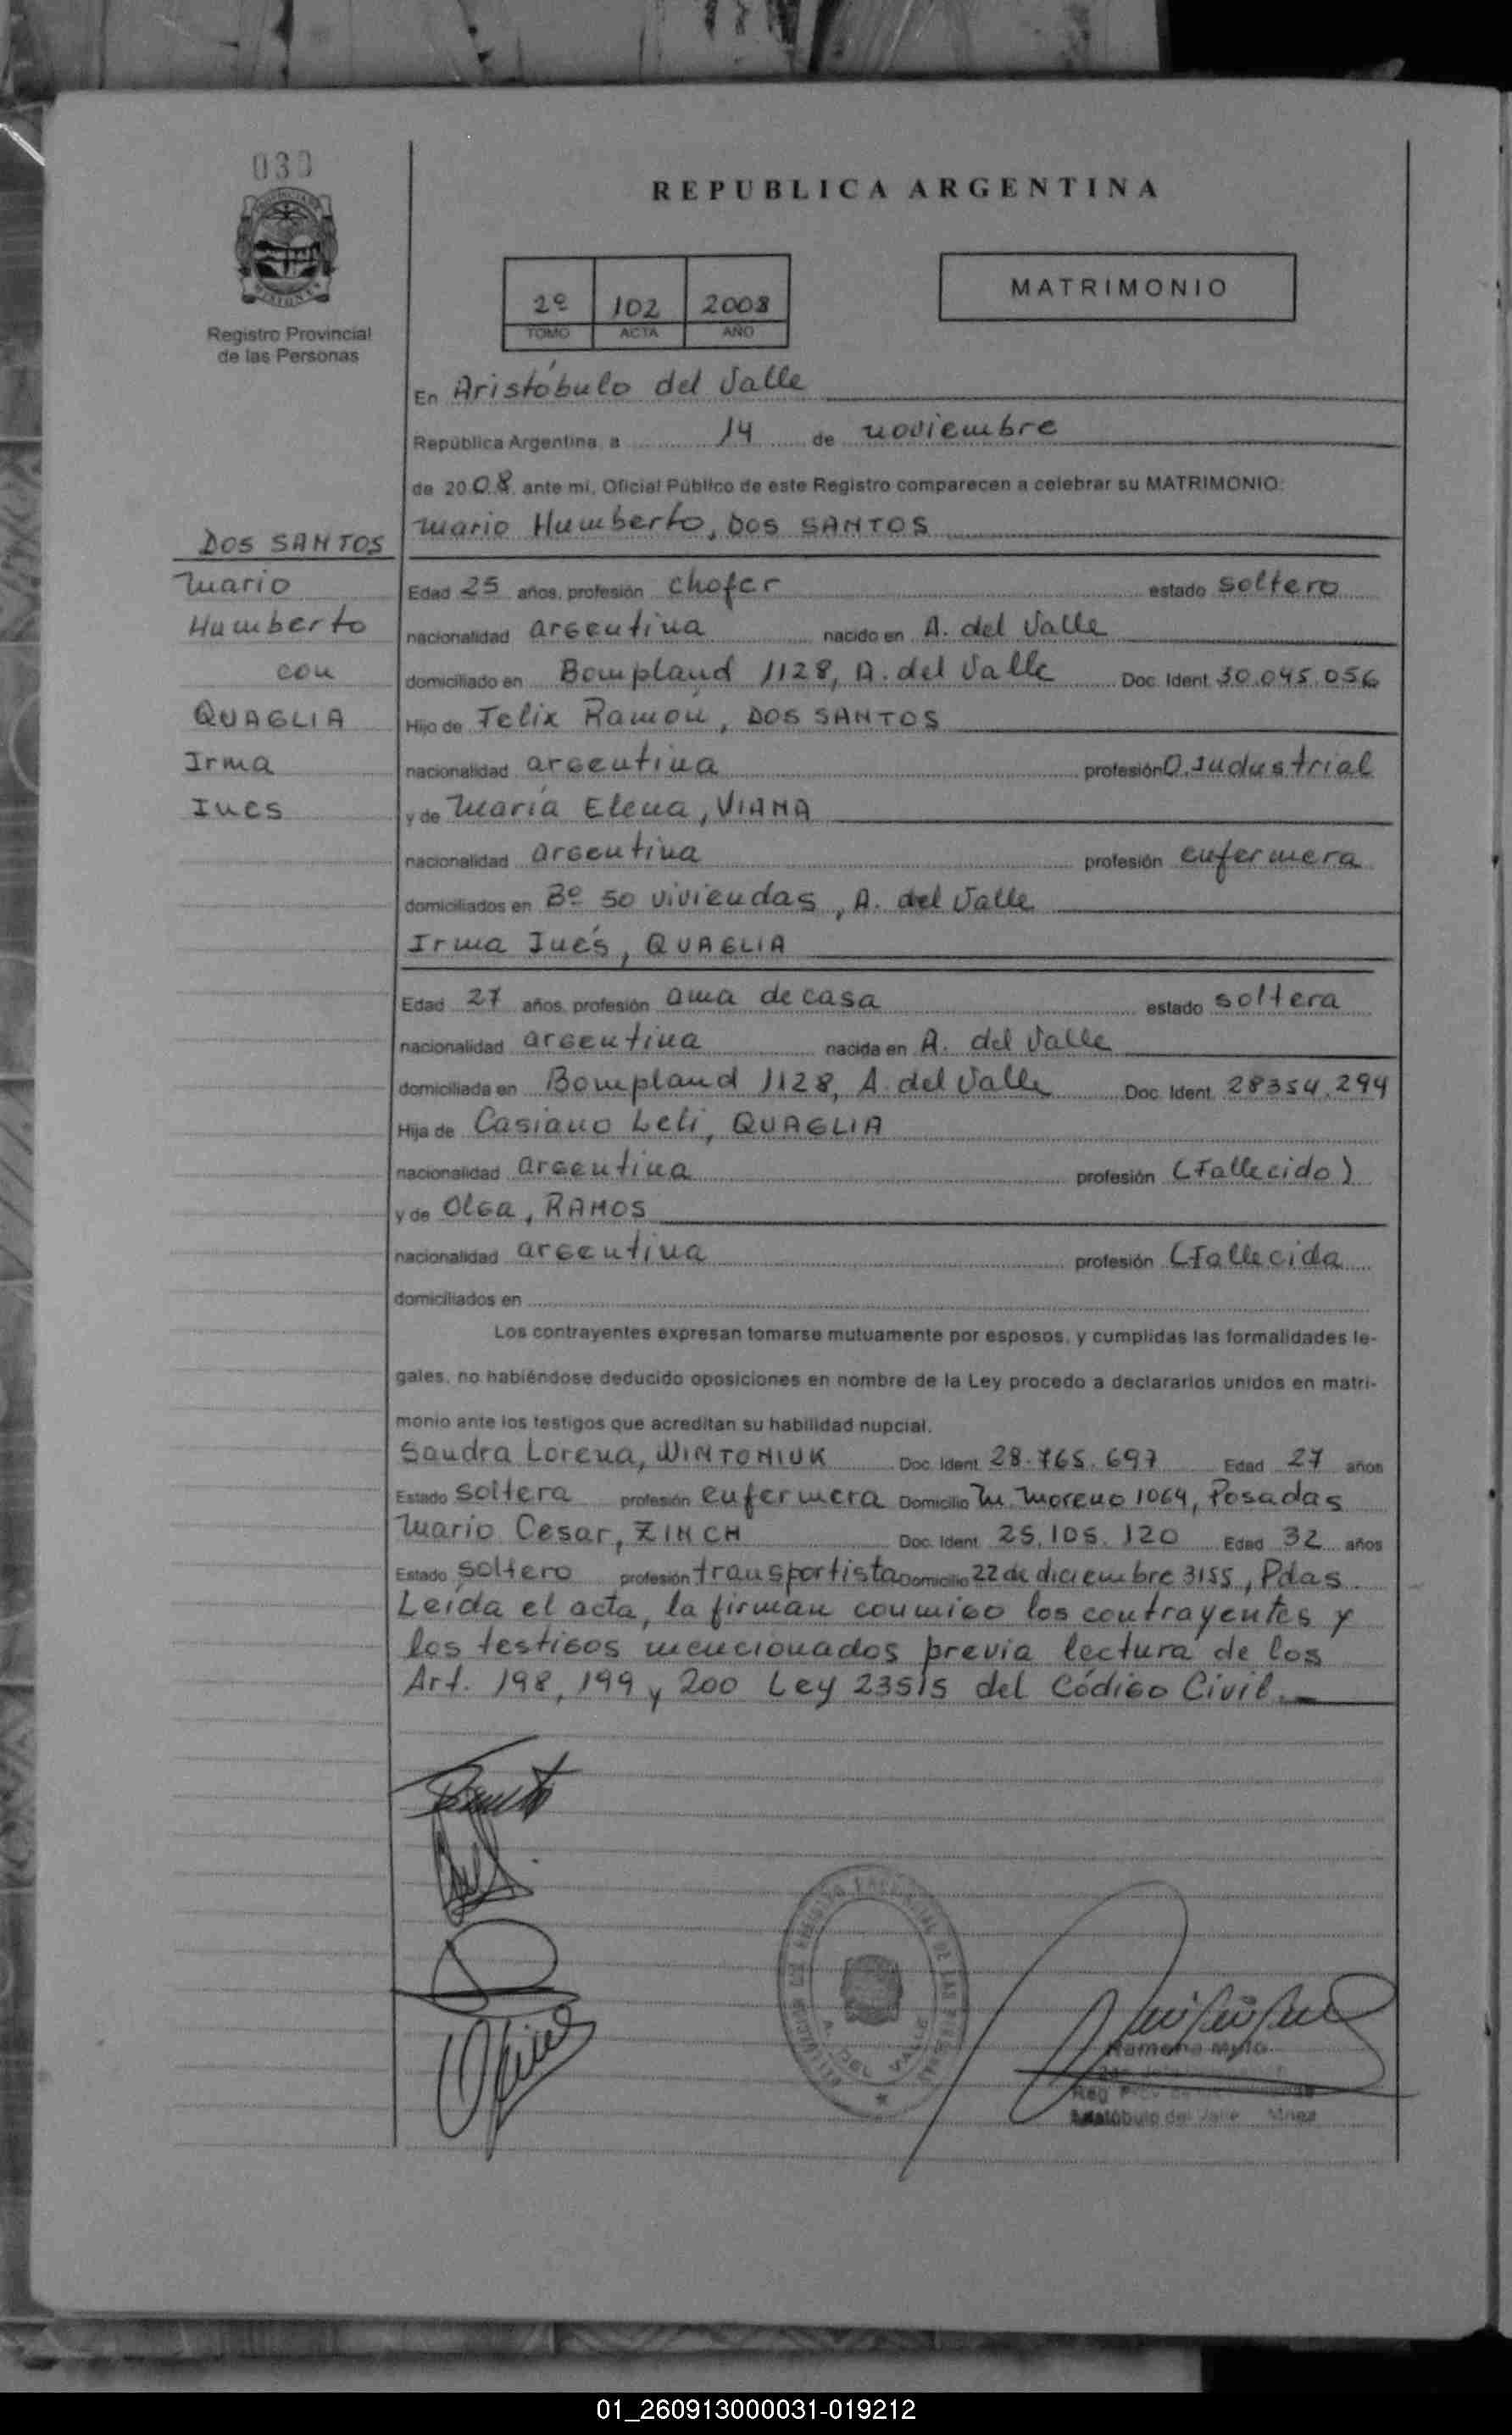 REPUBLICA ARGENTINA
MATRIMONIO
2º 102 2008
TOMO ACTA AÑO
Registro Provincial
de las Personas
En Aristóbulo del Valle
República Argentina, a 14 de noviembre
de 2008 ante mi, Oficial Público de este Registro comparecen a celebrar su MATRIMONIO:
Mario Humberto, DOS SANTOS
DOS SANTOS
Mario
Humberto
con
QUAGLIA
Irma
Ines
Edad 25 años, profesión chofer estado soltero
nacionalidad argentina nacido en A. del Valle
domiciliado en Bompland 1128, A. del Valle Doc. Ident. 30.045.056
Hijo de Felix Ramón, DOS SANTOS
nacionalidad argentina profesión O. Industrial
y de María Elena, VIANA
nacionalidad argentina profesión enfermera
domiciliados en Bº 50 viviendas, A. del Valle
Irma Inés, QUAGLIA
Edad 27 años, profesión ama de casa estado soltera
nacionalidad argentina nacida en A. del Valle
domiciliada en Bompland 1128, A. del Valle Doc. Ident. 28354.294
Hija de Casiano Leli, QUAGLIA
nacionalidad argentina profesión (Fallecido)
y de Olga, RAMOS
nacionalidad argentina profesión (Fallecida
domiciliados en
Los contrayentes expresan tomarse mutuamente por esposos, y cumplidas las formalidades le-
gales, no habiéndose deducido oposiciones en nombre de la Ley procedo a declararlos unidos en matri-
monio ante los testigos que acreditan su habilidad nupcial.
Sandra Lorena, WINTONIUK Doc. Ident. 28.765.697 Edad 27 años
Estado soltera profesión enfermera Domicilio M. Moreno 1064, Posadas
Mario Cesar, ZINCH Doc. Ident. 25.105.120 Edad 32 años
Estado soltero profesión transportista Domicilio 22 de diciembre 3155, Pdas
Leída el acta, la firman conmigo los contrayentes y
los testigos mencionados previa lectura de los
Art. 198, 199 y 200 Ley 23515 del Código Civil.
A. DEL VALLE
Aristóbulo del Valle
01_260913000031-019212